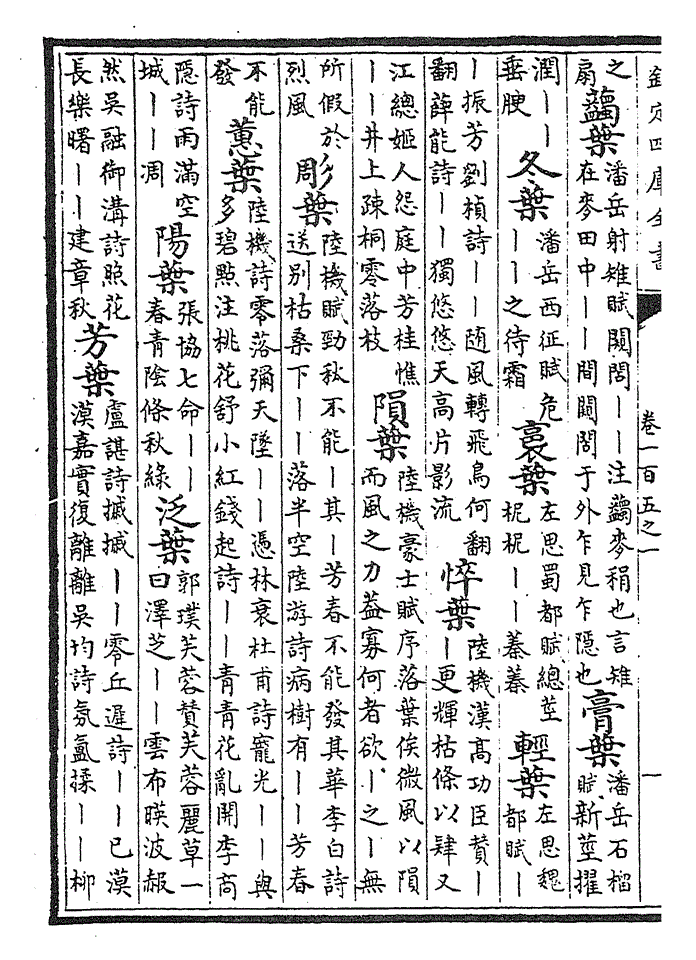 欽定四庫全書 卷一百五之一 一
之
扇
葉
潘岳射雉賦――注麥稍也言雉
在麥田中――間于外乍見乍隱也
膏葉
潘岳石榴
賦新莖擢
潤――
垂腴
冬葉
潘岳西征賦危
――之待霜
裛葉
左思蜀都賦總莖
柅柅――蓁蓁
輕葉
左思魏
都賦―
―振芳劉楨詩――随風轉飛鳥何翻
翻薛能詩――獨悠悠天高片影流
悴葉
陸機漢高功臣賛―
―更輝枯條以肄又
江總姬人怨庭中芳桂憔
――井上疎桐零落枝
隕葉
陸機豪士賦序落葉俟微風以隕
而風之力葢寡何者欲―之―無
所假於
烈風
彫葉
陸機賦勁秋不能―其―芳春不能發其華李白詩
送別枯桑下――落半空陸游詩病樹有――芳春
不能
發
蕙葉
陸機詩零落彌天墜――憑林衰杜甫詩寵光――與
多碧點注桃花舒小紅錢起詩――青青花亂開李商
隠詩雨滿空
城――凋
陽葉
張協七命――
春青陰條秋綠
泛葉
郭璞芙蓉賛芙蓉麗草一
曰澤芝――雲布暎波赧
然吳融御溝詩照花
長樂曙――建章秋
芳葉
盧諶詩摵摵――零丘遲詩――已漠
漠嘉實復離離吳均詩氛氳揉――柳